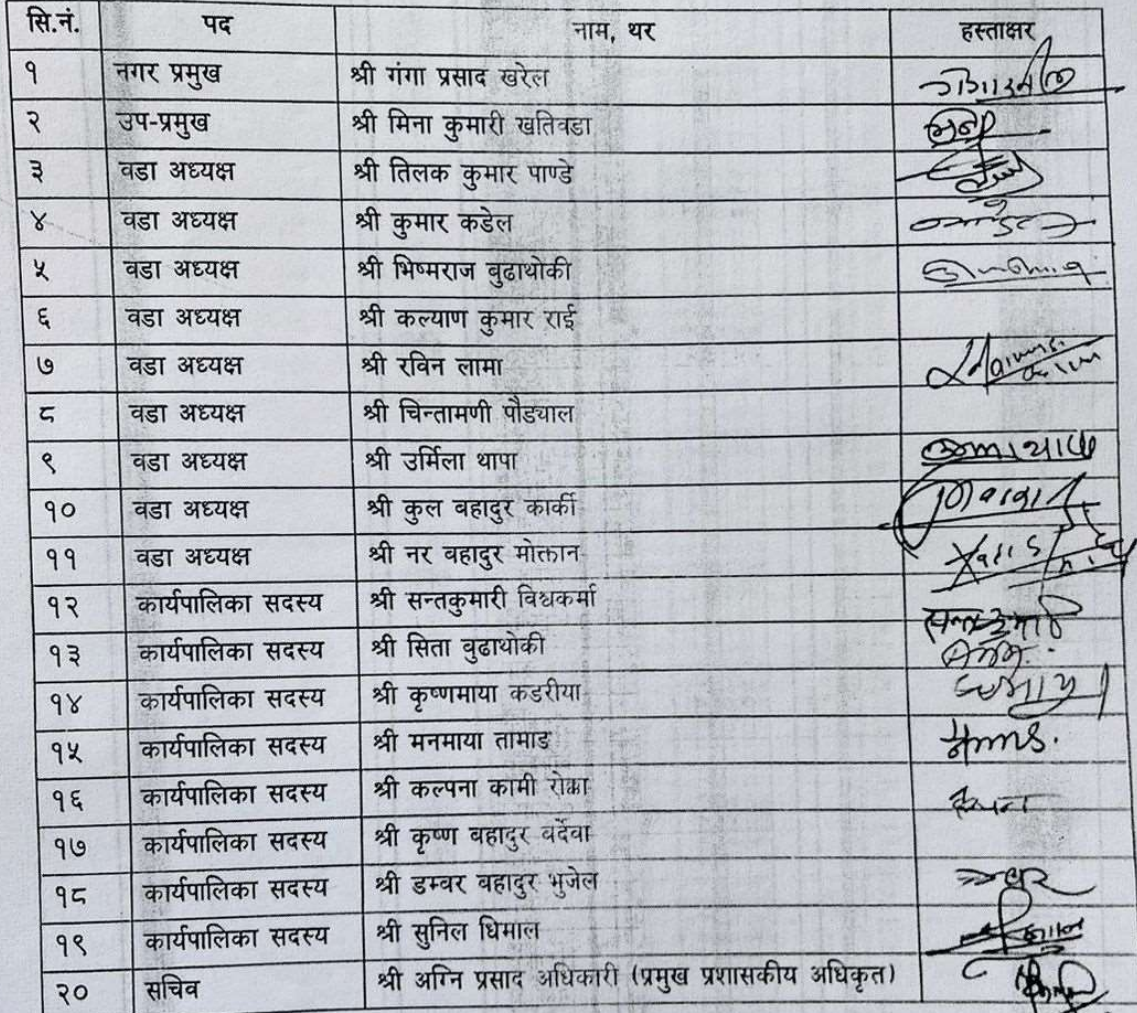 सि.नं. पद नाम, थर हस्ताक्षर
१ नगर प्रमुख श्री गंगा प्रसाद खरेल
२ उप-प्रमुख श्री मिना कुमारी खतिवडा
३ वडा अध्यक्ष श्री तिलक कुमार पाण्डे
४ वडा अध्यक्ष श्री कुमार कडेल
५ वडा अध्यक्ष श्री भिष्मराज बुढाथोकी
६ वडा अध्यक्ष श्री कल्याण कुमार राई
७ वडा अध्यक्ष श्री रविन लामा
८ वडा अध्यक्ष श्री चिन्तामणी पौड्याल
९ वडा अध्यक्ष श्री उर्मिला थापा
१० वडा अध्यक्ष श्री कुल बहादुर कार्की
११ वडा अध्यक्ष श्री नर बहादुर मोक्तान
१२ कार्यपालिका सदस्य श्री सन्तकुमारी विश्वकर्मा सन्तकुमारी
१३ कार्यपालिका सदस्य श्री सिता बुढाथोकी
१४ कार्यपालिका सदस्य श्री कृष्णमाया कडरीया
१५ कार्यपालिका सदस्य श्री मनमाया तामाङ
१६ कार्यपालिका सदस्य श्री कल्पना कामी रोक्का
१७ कार्यपालिका सदस्य श्री कृष्ण बहादुर बर्देवा
१८ कार्यपालिका सदस्य श्री डम्बर बहादुर भुजेल
१९ कार्यपालिका सदस्य श्री सुनिल धिमाल
२० सचिव श्री अग्नि प्रसाद अधिकारी (प्रमुख प्रशासकीय अधिकृत)